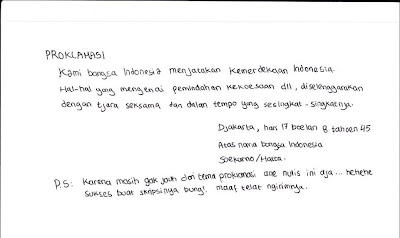 PROKLAMASI
Kami bangsa Indonesia menjatakan Kemerdekaan Indonesia.
Hal-hal yang mengenai pemindahan kekoeasaan dll, diselenggarakan
dengan tjara seksama dan dalam tempo yang sesingkat-singkatnya.
Djakarta, hari 17 boelan 8 tahoen 45
Atas nama bangsa Indonesia
Soekarno/Hatta.
P.S: Karena masih gak jauh dari tema proklamasi aoe nulis ini aja... hehehe
sukses buat skripsinya bung!. maaf telat ngirimnya.